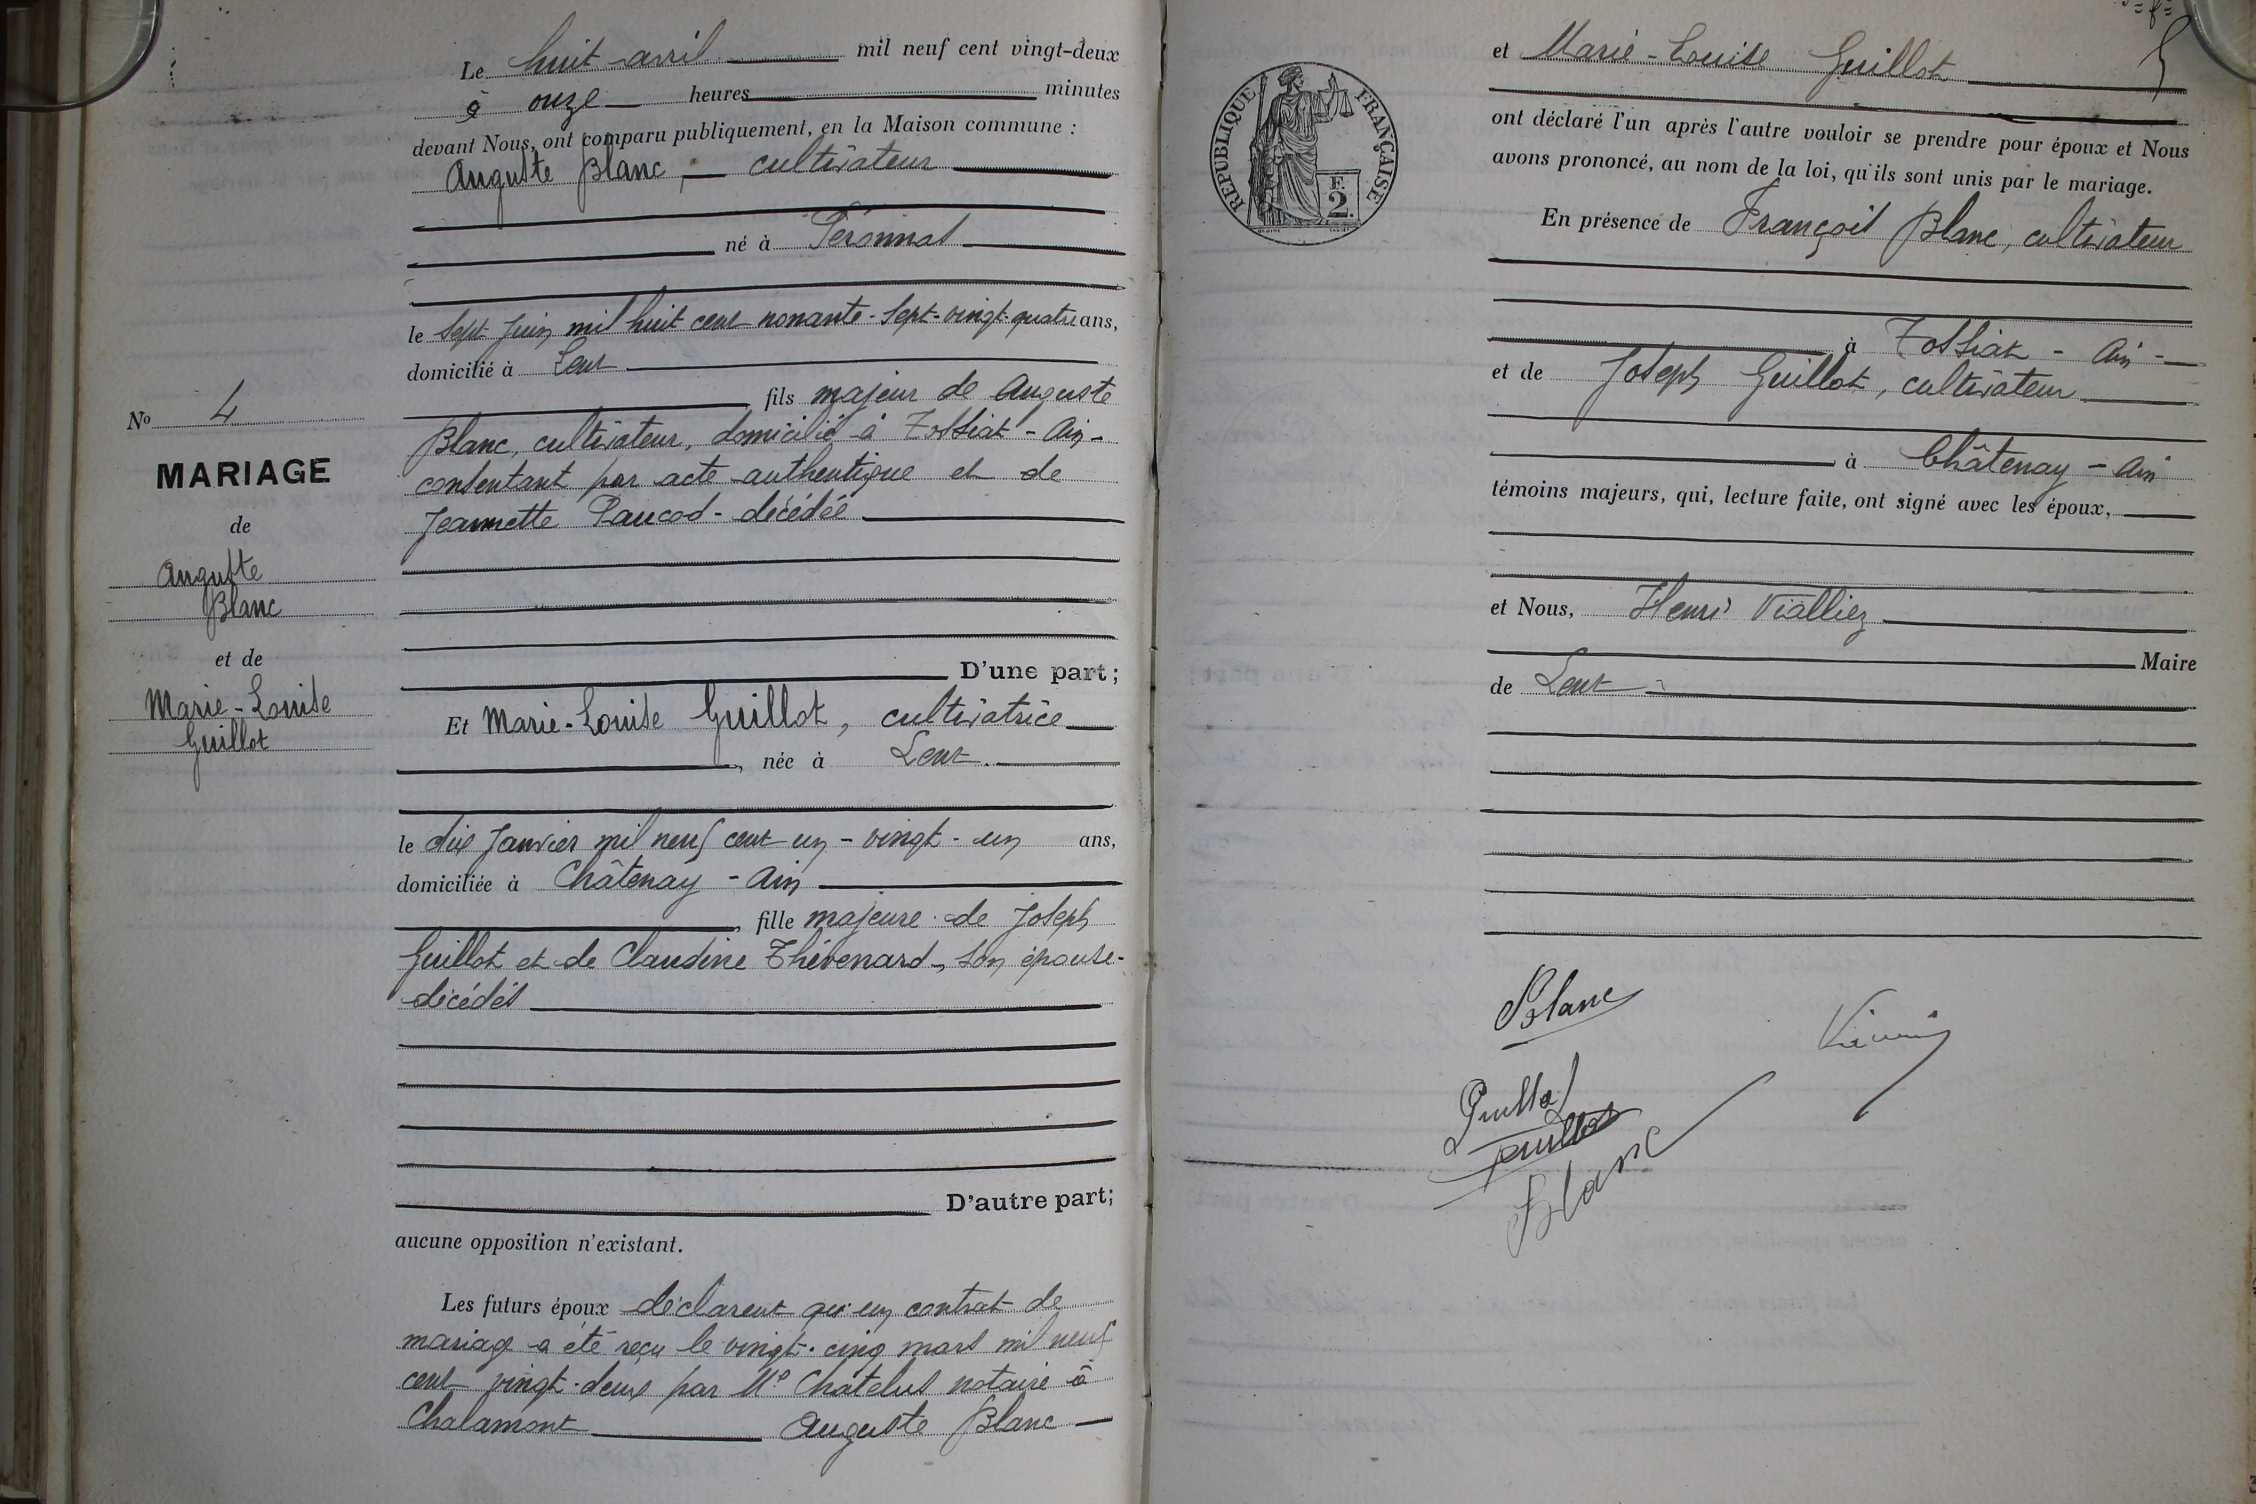 Le huit avril mil neuf cent vingt-deux
à onze heures minutes
devant Nous, ont comparu publiquement, en la Maison commune :
Auguste Blanc, cultivateur
né à Péronnas
le sept juin mil huit cent nonante-sept-vingt-quatre ans,
domicilié à Lent
fils majeur de Auguste
Blanc, cultivateur, domicilié à Tossiat - Ain -
consentant par acte authentique et de
Jeannette Paucod - décédée
D'une part ;
Nº 4
MARIAGE
de
Auguste
Blanc
et de
Marie-Louise
Guillot
Et Marie-Louise Guillot, cultivatrice
, née à Lent.
le dix Janvier mil neuf cent un - vingt-un ans,
domiciliée à Châtenay - Ain
, fille majeure de Joseph
Guillot et de Claudine Thévenard, son épouse-
décédés
D'autre part;
aucune opposition n'existant.
Les futurs époux déclarent qu'un contrat de
mariage a été reçu le vingt-cinq mars mil neuf
cent vingt-deux par Me Châtelus notaire à
Chalamont Auguste Blanc
RÉPUBLIQUE FRANÇAISE
F.
2.
et Marie-Louise Guillot
ont déclaré l'un après l'autre vouloir se prendre pour époux et Nous
avons prononcé, au nom de la loi, qu'ils sont unis par le mariage.
En présence de François Blanc, cultivateur
à Tossiat - Ain -
et de Joseph Guillot, cultivateur
à Châtenay - Ain
témoins majeurs, qui, lecture faite, ont signé avec les époux,
et Nous, Henri Vialliez
Maire
de Lent
Blanc
Guillot
Guillot
Blanc